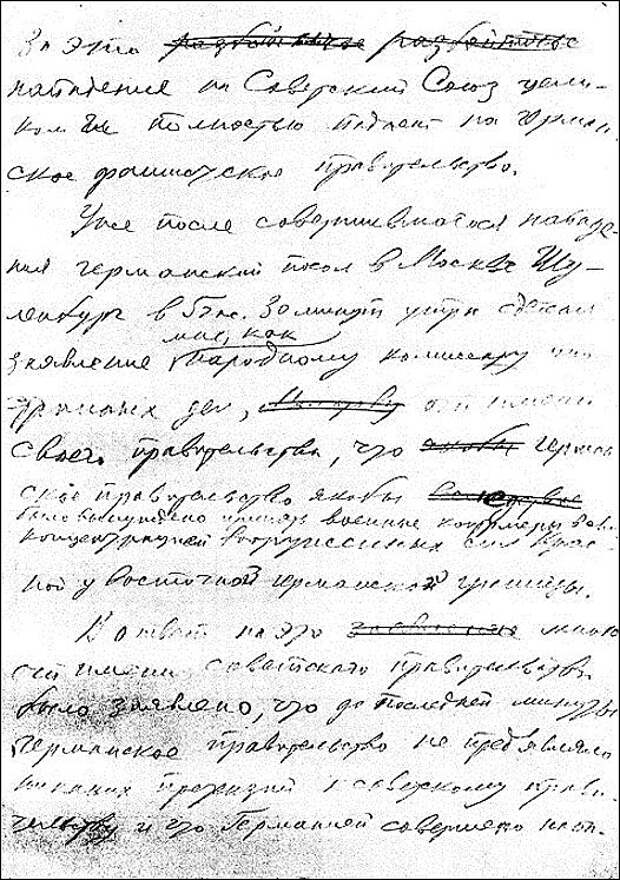 За это разбойничье разбойничье
нападение на Советский Союз цели-
ком и полностью падает на герман
ское фашистское правительство.
Уже после совершившегося нападе-
ния германский посол в Москве Шу-
ленбург в 5 час. 30 минут утра сделал
мне, как
заявление народному комиссару ино
странных дел, от имени
своего правительства, что якобы Герман
ское правительство якобы
было вынуждено принять военные контрмеры в связи
концентрацией вооруженных сил Крас
ной у восточной германской границы.
В ответ на это заявление мною
от имени советского правительства
было заявлено, что до последней минуты
Германское правительство не предъявляло
никаких претензий к советскому прави
тельству и что Германией совершено нап.